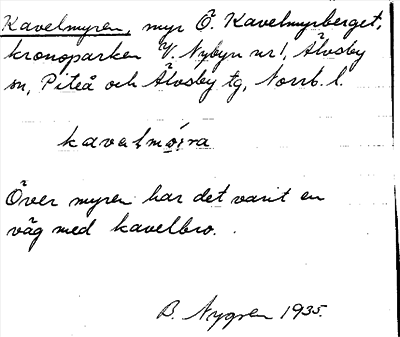 Kavelmyren, myr Ö. Kavelmyrberget,
kronoparken V. Nybyn nr 1, Älvsby
sn, Piteå och Älvsby tg, Norrb. l.
kavelmøira
Över myren har det varit en
väg med kavelbro.
B. Nygren 1935.